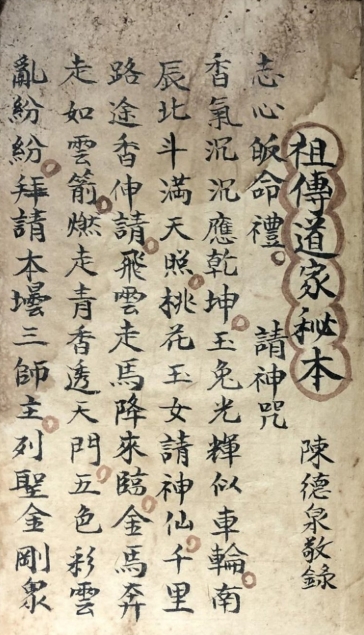 祖傳道家秘本 陳德泉敬錄
志心皈命禮 請神咒
香氣沉沉應乾坤玉兔光輝似車輪南
辰北斗滿天照桃花玉女請神仙千里
路途香伸請飛雲走馬降來臨金馬奔
走如雲箭燃走青香透天門五色彩雲
亂紛紛拜請本壇三師主列聖金剛衆